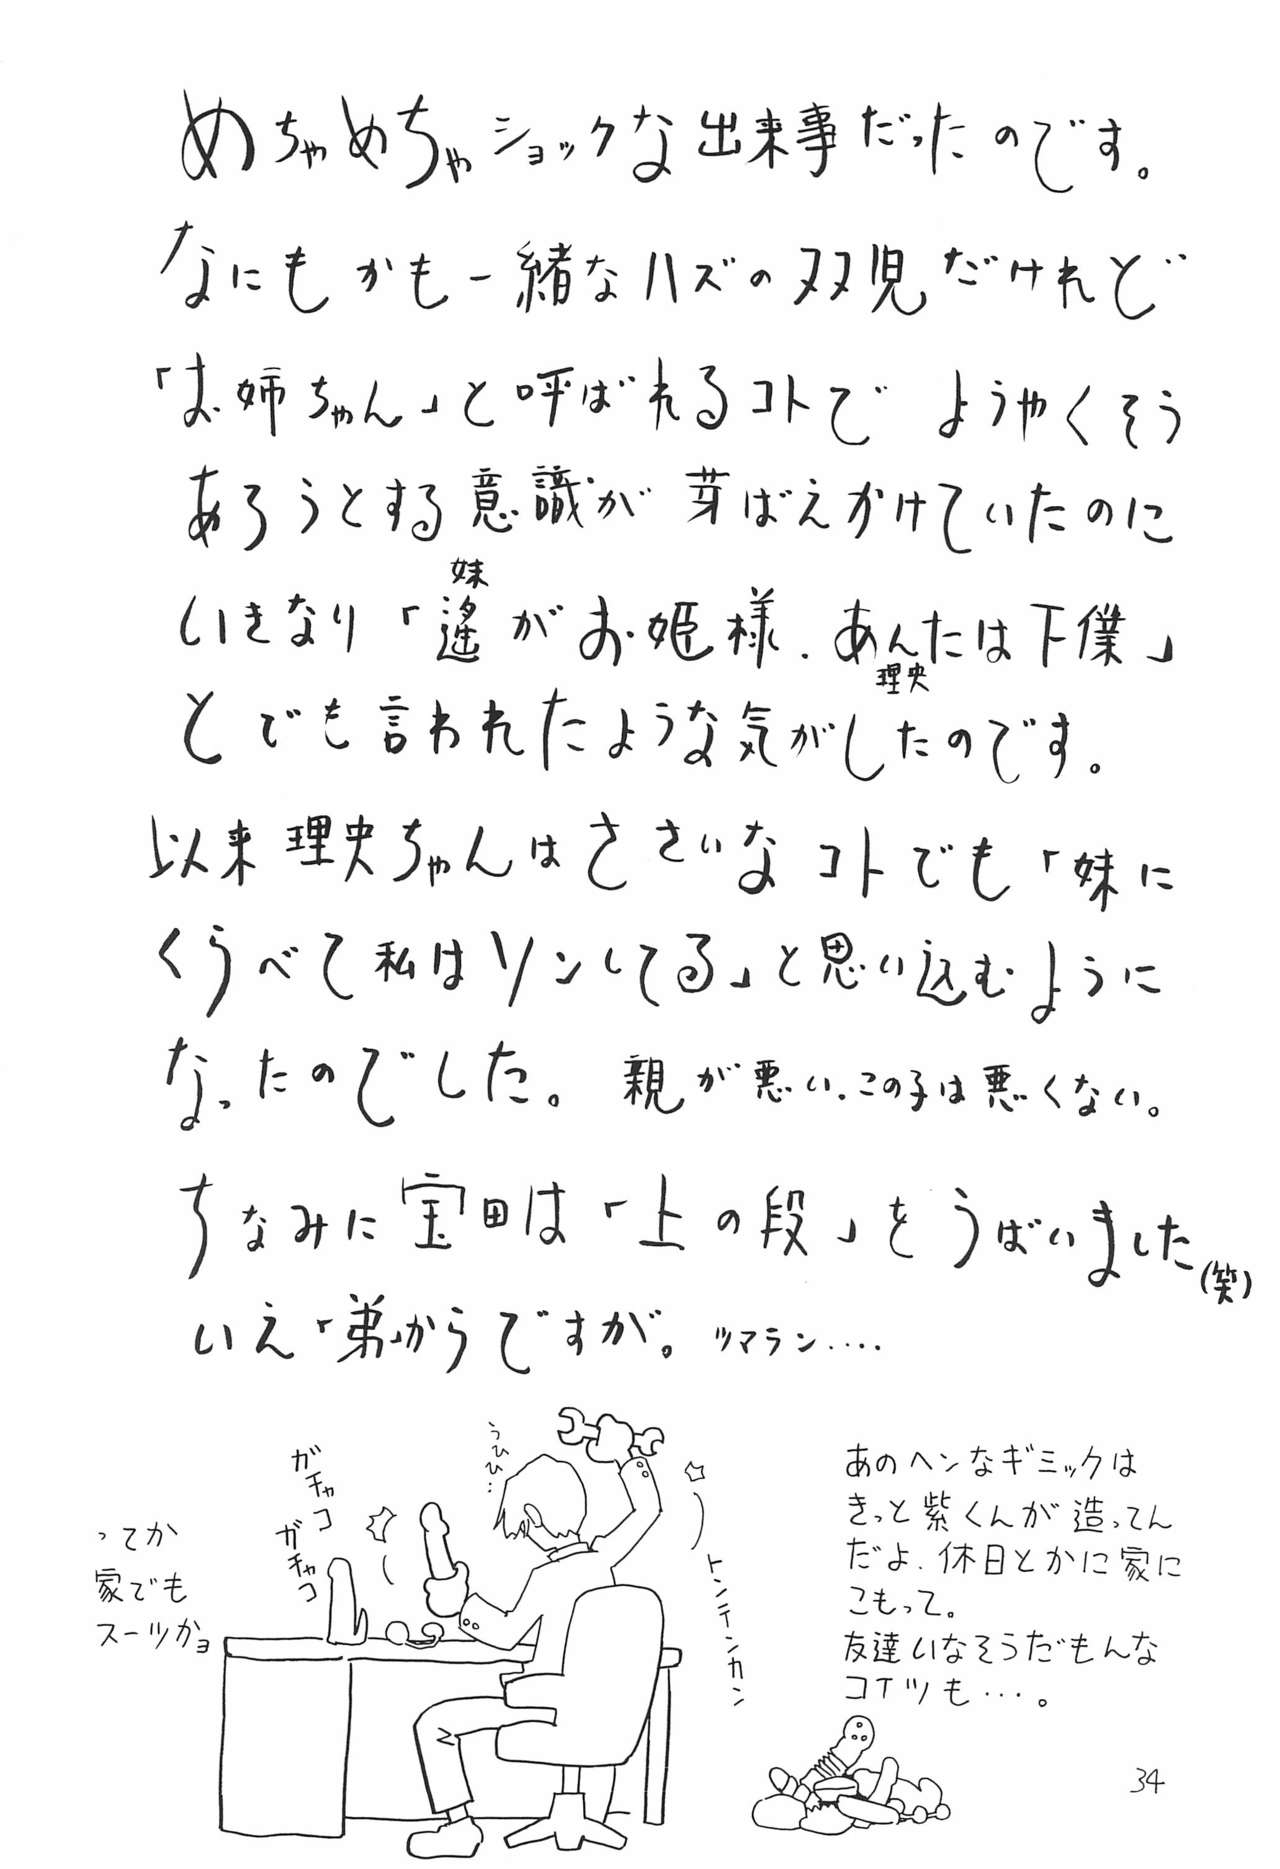 めちゃめちゃショックな出来事だったのです。
なにもかも一緒なハズの双児だけれど
「お姉ちゃん」と呼ばれるコトで ようやくそう
あろうとする意識が 芽ばえかけていたのに
妹
いきなり「遙がお姫様. あんたは下僕」
理央
とでも言われたような気がしたのです。
以来 理央ちゃんはささいなコトでも「妹に
くらべて私はソンしてる」と思い込むように
なったのでした。 親が悪い. この子は悪くない。
ちなみに宝田は「上の段」をうばいました
(笑)
いえ「弟」からですが。 ツマラン‥‥
うひひ…
ガチャコ
ガチャコ
トンテンカン
ってか
家でも
スーツかョ
あのヘンなギミックは
きっと紫くんが造ってん
だよ. 休日とかに家に
こもって。
友達いなそうだもんな
コイツも…。
34